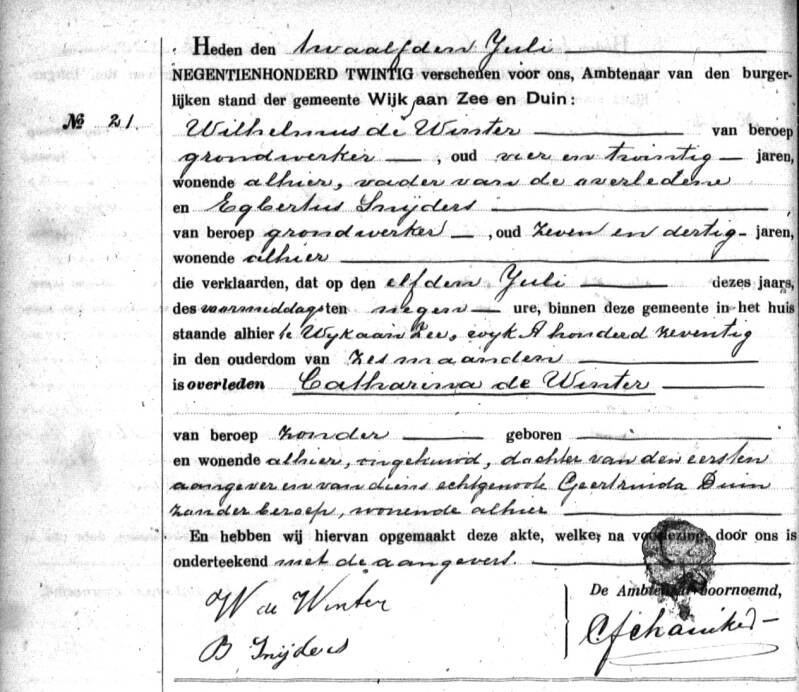 Heden den twaalfden Juli
NEGENTIENHONDERD TWINTIG verschenen voor ons, Ambtenaar van den burger-
lijken stand der gemeente Wijk aan Zee en Duin:
№ 21.
Wilhelmus de Winter van beroep
grondwerker, oud vier en twintig jaren,
wonende alhier, vader van de overledene
en Egbertus Snijders
van beroep grondwerker, oud zeven en dertig jaren,
wonende alhier
die verklaarden, dat op den elfden Juli dezes jaars,
des voormiddags ten negen ure, binnen deze gemeente in het huis
staande alhier te Wijk aan Zee, wijk A honderd zeventig
in den ouderdom van zes maanden
is overleden Catharina de Winter
van beroep zonder geboren
en wonende alhier, ongehuwd, dochter van den eersten
aangever en van diens echtgenoote Geertruida Duin
zonder beroep, wonende alhier
En hebben wij hiervan opgemaakt deze akte, welke, na voorlezing, door ons is
onderteekend met de aangevers.
De Ambtenaar voornoemd,
W de Winter
B Snijders